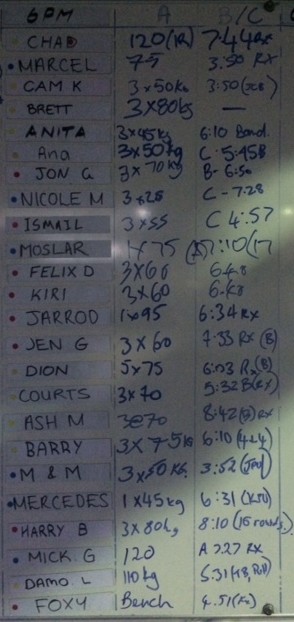 6PM A B/C
CHAD 120(1R) 7:44 Rx
MARCEL 75 3:50 Rx
CAM K 3x50kg 3:50
BRETT 3x80kg —
ANITA 3x45kg 6:10 Band
Ana 3x50kg C-5:45B
JON G 3x70kg B-6:50
NICOLE M 3x25 C-7:28
ISMAIL 3x55 C 4:57
MOSLAR 1x75
FELIX D 3x60 6:48
KIRI 3x60
JARROD 1x95 6:34 Rx
JEN G 3x60 7:33 Rx (B)
DION 5x75 6:03 Rx(B)
COURTS 3x70 5:32 B(Rx)
ASH M 3@70 8:42(B) Rx
BARRY 3x75kg 6:10
M & M 3x50kg 3:52
MERCEDES 1x45kg 6:31
HARRY B 3x80kg 8:10 (15 rounds)
MICK. G 120 A 7:27 Rx
DAMO. L 110kg 5:31
FOXY Bench 4:51